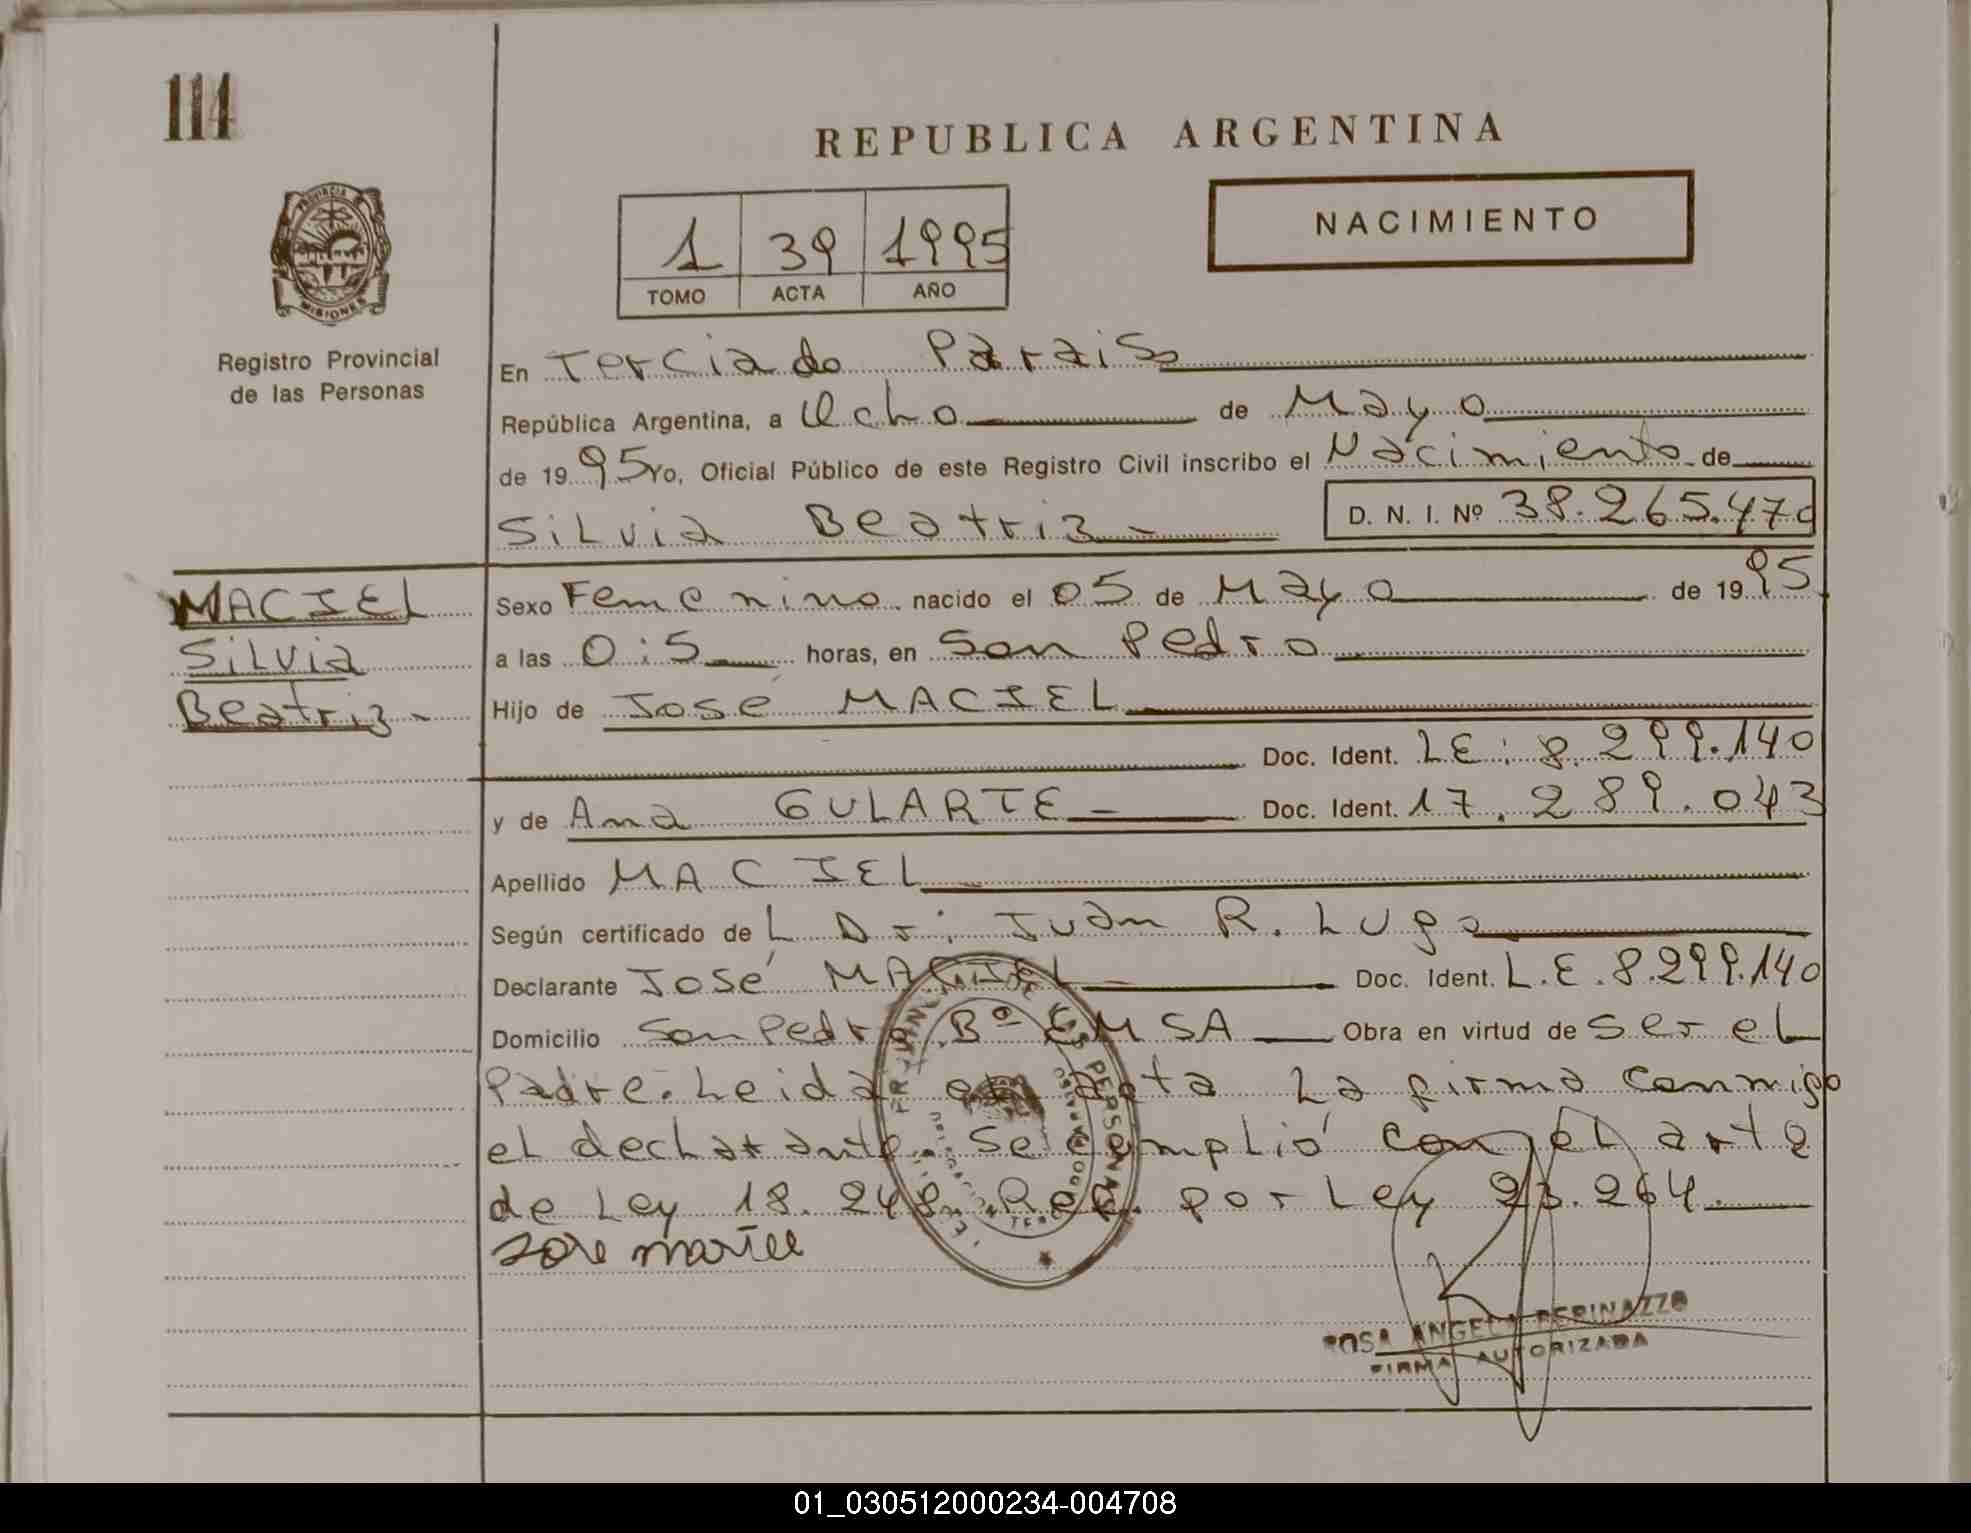 114
REPUBLICA ARGENTINA
NACIMIENTO
1 39 1995
TOMO ACTA AÑO
PROVINCIA DE
MISIONES
Registro Provincial
de las Personas
En Terciado Paraiso
República Argentina, a Ocho de Mayo
de 1995 yo, Oficial Público de este Registro Civil inscribo el Nacimiento de
Silvia Beatriz - D. N. I. Nº 38.265.470
MACIEL
Silvia
Beatriz -
Sexo Femenino nacido el 05 de Mayo de 1995
a las 0:5 horas, en San Pedro
Hijo de José MACIEL
Doc. Ident. LE: 8.299.140
y de Ana GULARTE - Doc. Ident. 17.289.043
Apellido MACIEL
Según certificado de L Dr: Juan R. Lugo
Declarante José MACIEL Doc. Ident. L.E. 8.299.140
Domicilio San Pedro Bº EMSA Obra en virtud de ser el
Padre. Leida el acta La firma conmigo
el declarante. Se cumplió con el art 2
de Ley 18.248 Ref. por Ley 23.264.
ROSA ANGELA PERINAZZO
FIRMA AUTORIZADA
01_030512000234-004708